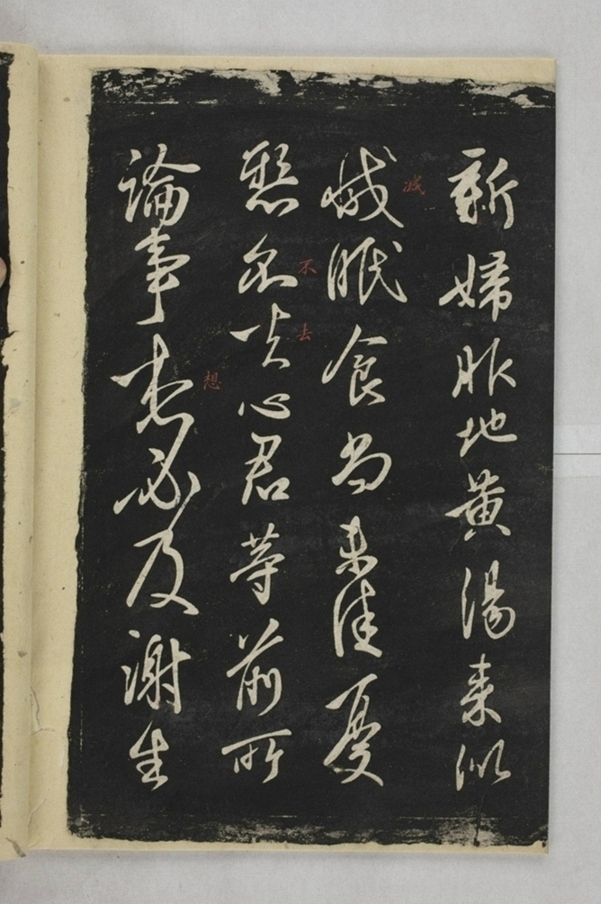 新婦服地黃湯来似
減眠食尚未佳憂
懸不去心君等前所
論事想必及謝生
减
不
去
想